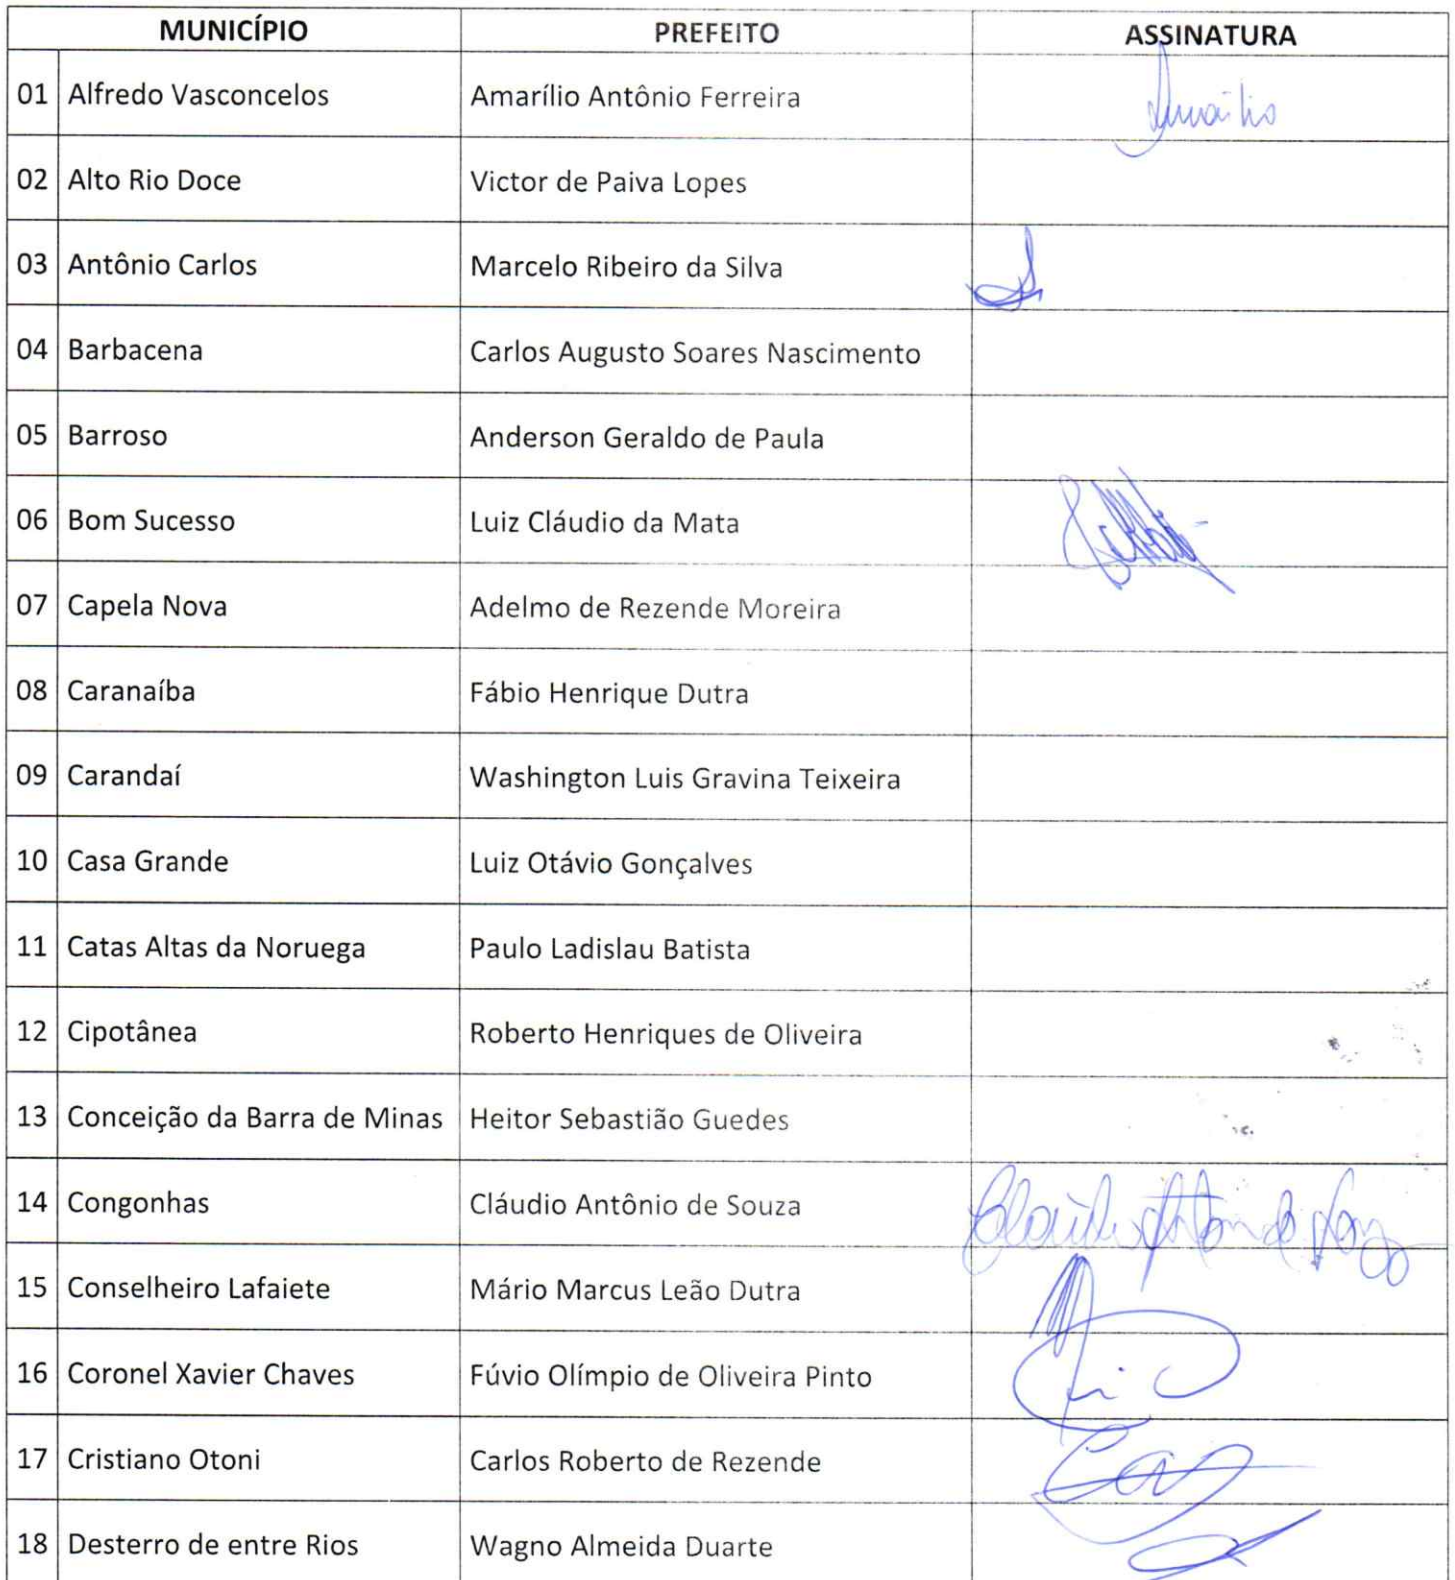 MUNICÍPIO PREFEITO ASSINATURA
01 Alfredo Vasconcelos Amarílio Antônio Ferreira Amarílio
02 Alto Rio Doce Victor de Paiva Lopes
03 Antônio Carlos Marcelo Ribeiro da Silva
04 Barbacena Carlos Augusto Soares Nascimento
05 Barroso Anderson Geraldo de Paula
06 Bom Sucesso Luiz Cláudio da Mata
07 Capela Nova Adelmo de Rezende Moreira
08 Caranaíba Fábio Henrique Dutra
09 Carandaí Washington Luis Gravina Teixeira
10 Casa Grande Luiz Otávio Gonçalves
11 Catas Altas da Noruega Paulo Ladislau Batista
12 Cipotânea Roberto Henriques de Oliveira
13 Conceição da Barra de Minas Heitor Sebastião Guedes
14 Congonhas Cláudio Antônio de Souza Cláudio Antonio de Souza
15 Conselheiro Lafaiete Mário Marcus Leão Dutra
16 Coronel Xavier Chaves Fúvio Olímpio de Oliveira Pinto
17 Cristiano Otoni Carlos Roberto de Rezende
18 Desterro de entre Rios Wagno Almeida Duarte